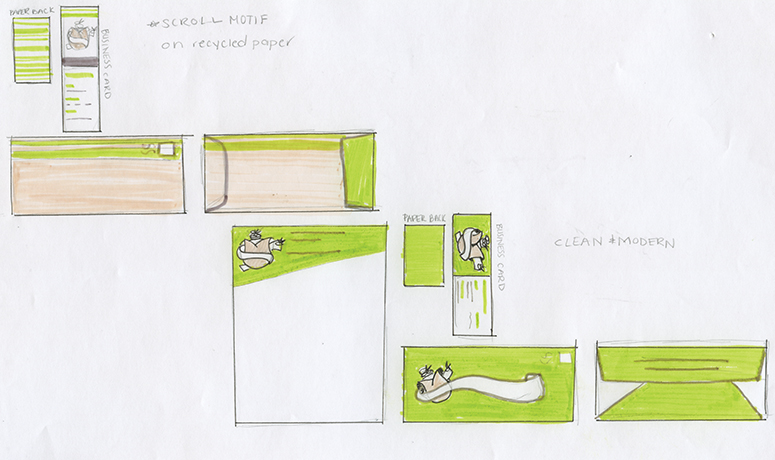 PAPER BACK
BUSINESS CARD
*SCROLL MOTIF
on recycled paper
PAPER BACK
BUSINESS CARD
CLEAN & MODERN